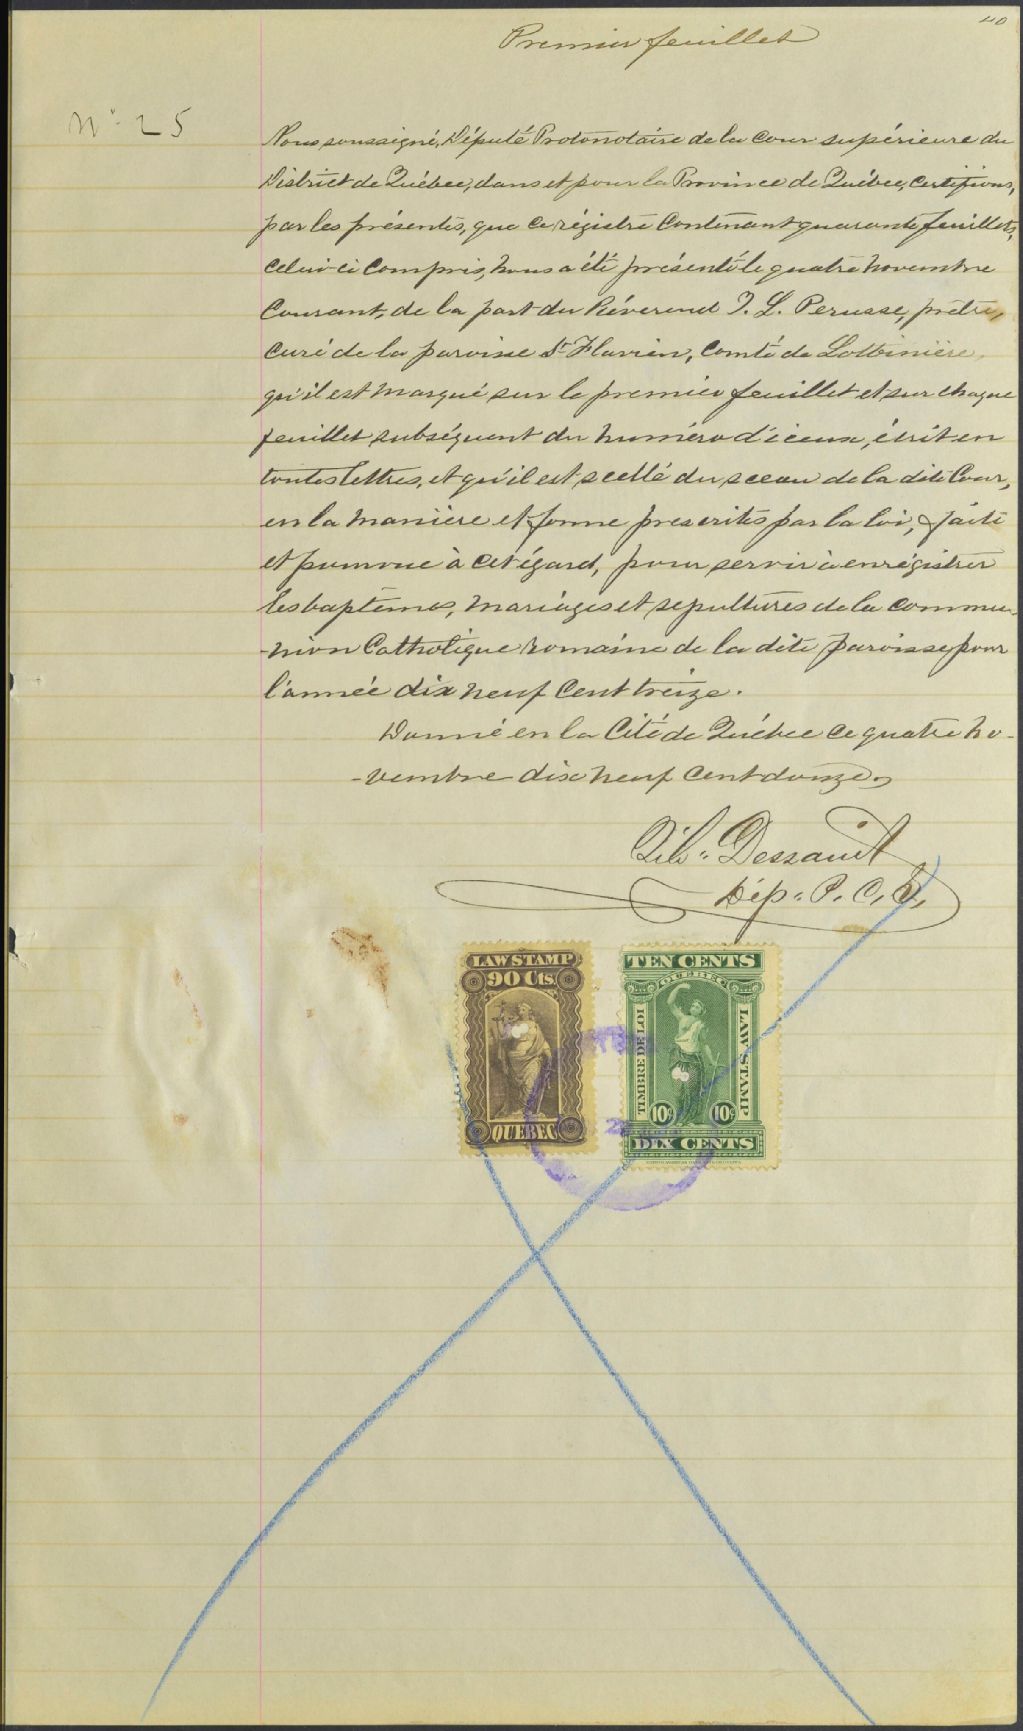 40
Premier feuillet
No. 25
Nous soussigné, Député Protonotaire de la Cour supérieure du
District de Québec, dans et pour la Province de Québec, certifions,
par les présentes, que ce régistre contenant quarante feuillets,
celui-ci compris, nous a été présenté le quatre novembre
courant, de la part du Révérend J. L. Perusse, prêtre,
curé de la paroisse St Flavien, Comté de Lotbinière,
qu'il est marqué sur le premier feuillet et sur chaque
feuillet subséquent du numéro d'iceux, écrit en
toutes lettres, et qu'il est scellé du sceau de la dite Cour,
en la manière et forme prescrites par la loi, faite
et pourvue à cet égard, pour servir à enrégistrer
les baptêmes, mariages et sepultures de la commu-
-nion Catholique romaine de la dite paroisse pour
l'année dix neuf cent treize.
Donné en la Cité de Québec ce quatre no-
-vembre dix neuf cent douze,
Dessault
Dép. P. C. S.
LAW STAMP
90 Cts.
QUEBEC
TEN CENTS
QUEBEC
TIMBRE DE LOI
LAW STAMP
10c 10c
DIX CENTS